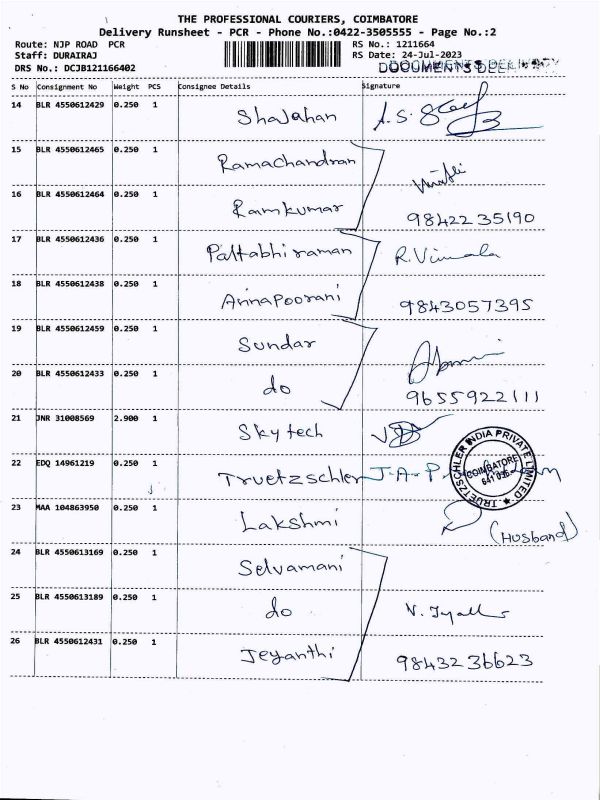 THE PROFESSIONAL COURIERS, COIMBATORE
Delivery Runsheet - PCR - Phone No.:0422-3505555 - Page No.:2
Route: NJP ROAD PCR RS No.: 1211664
Staff: DURAIRAJ RS Date: 24-Jul-2023
DRS No.: DCJB121166402
S No Consignment No Weight PCS Consignee Details Signature
14 BLR 4550612429 0.250 1 Shajahan
15 BLR 4550612465 0.250 1 Ramachandran
16 BLR 4550612464 0.250 1 Ramkumar 98422 35190
17 BLR 4550612436 0.250 1 Pattabhiraman R. Vimala
18 BLR 4550612438 0.250 1 Annapoorani 9843057395
19 BLR 4550612459 0.250 1 Sundar
20 BLR 4550612433 0.250 1 do 9655922111
21 JNR 31008569 2.900 1 Skytech
22 EDQ 14961219 0.250 1 Truetzschler J-A-P
TRUETZSCHLER INDIA PRIVATE LIMITED.
COIMBATORE
23 MAA 104863950 0.250 1 Lakshmi (Husband)
24 BLR 4550613169 0.250 1 Selvamani
25 BLR 4550613189 0.250 1 do
26 BLR 4550612431 0.250 1 Jeyanthi 98432 36623